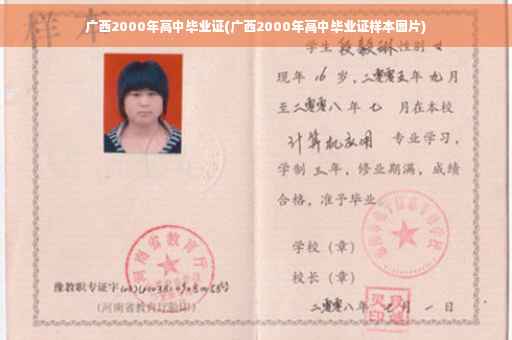 广西2000年高中毕业证(广西2000年高中毕业证样本图片)
样本
学生 段毅琳 性别 女
现年 16 岁，二零零五年 九月
至二零零八年 七 月在本校
计算机应用 专业学习，
学制 三年，修业期满，成绩
合格，准予毕业
学校（章）
校长（章）
二零零八年 七 月 一 日
河南省教育厅
豫教职专证字
(河南省教育厅验印)